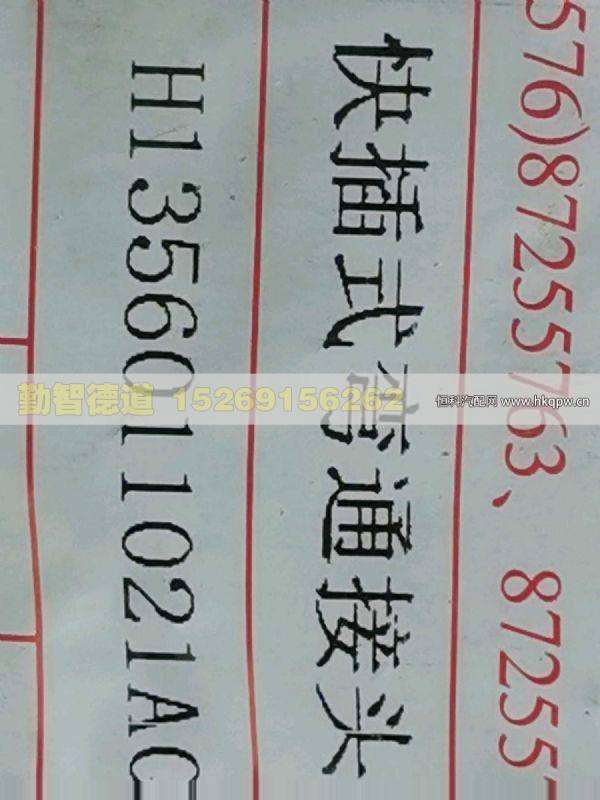 576)87255763、87255
快插式弯通接头
H1356011021AC
勤智德道 15269156262
恒科汽配网 www.hkqpw.cn